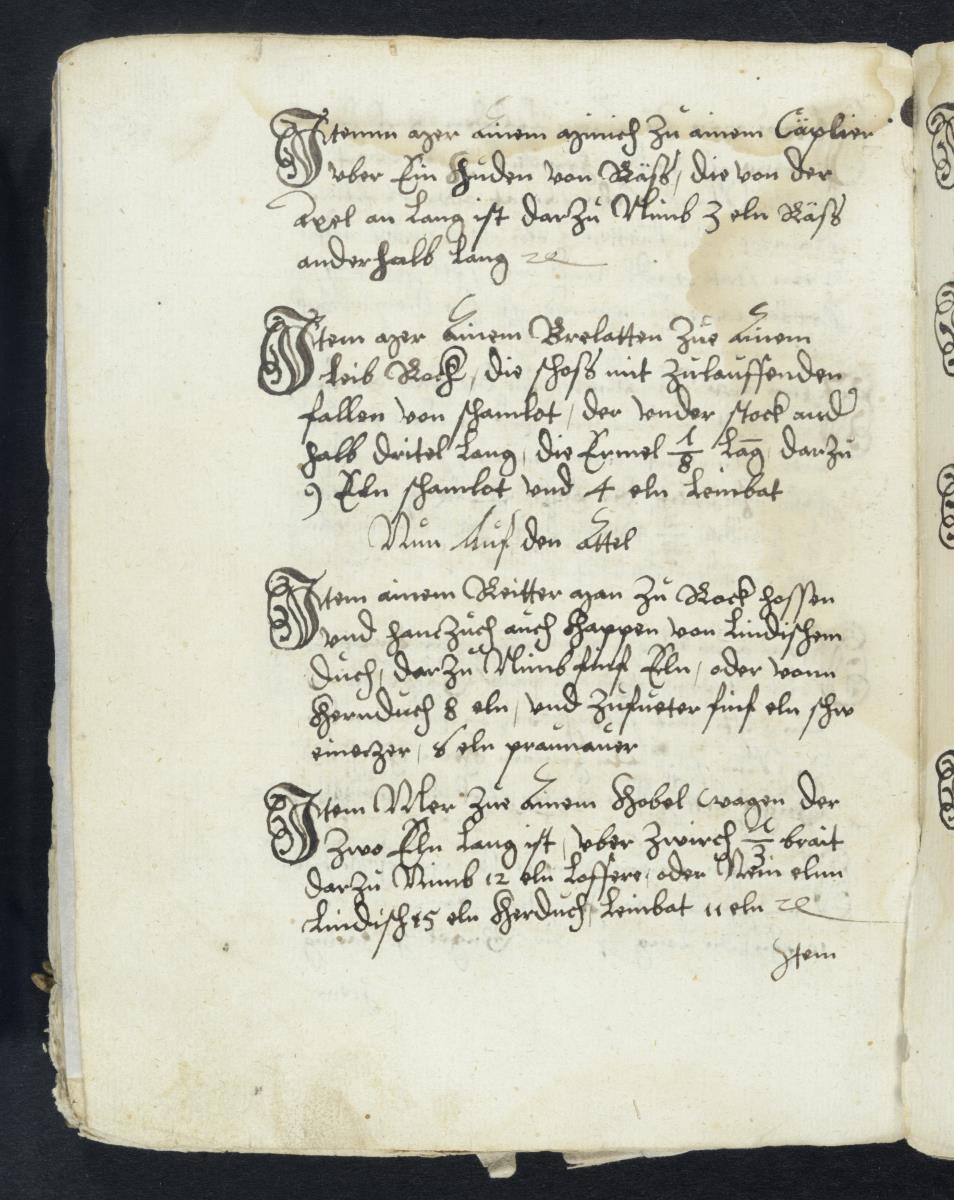 Itemm mer ainem minich zu ainem Cäplier
vber Ein huden von Räss, die von der
Axel an lang ist darzu Nimb 3 eln Räss
anderhalb lang
Item mer Ainem Brelatten zue Ainem
leib Rock, die schoss mit zulauffenden
fallen von schamlot, der vnder stock and
halb dritel lang, die Ermel 1/8 lang, darzu
9 Eln schamlot vnd 4 eln leinbat
Nun Auf den Attel
Item ainem Reitter man zu Rock hossen
vnd hanczuch auch Kappen von lindischem
duch, darzu Nimb finf Eln, oder vonn
Hernduch 8 eln, vnd zufueter finf eln schw
eineczer, 6 eln praunauer
Item Mer zue Ainem Kobel wagen der
zwo Eln lang ist, vber zwirch brait
darzu Nimb 12 eln loffere, oder Nein elnn
lindisch 15 eln Herduch, leinbat 11 eln
Item